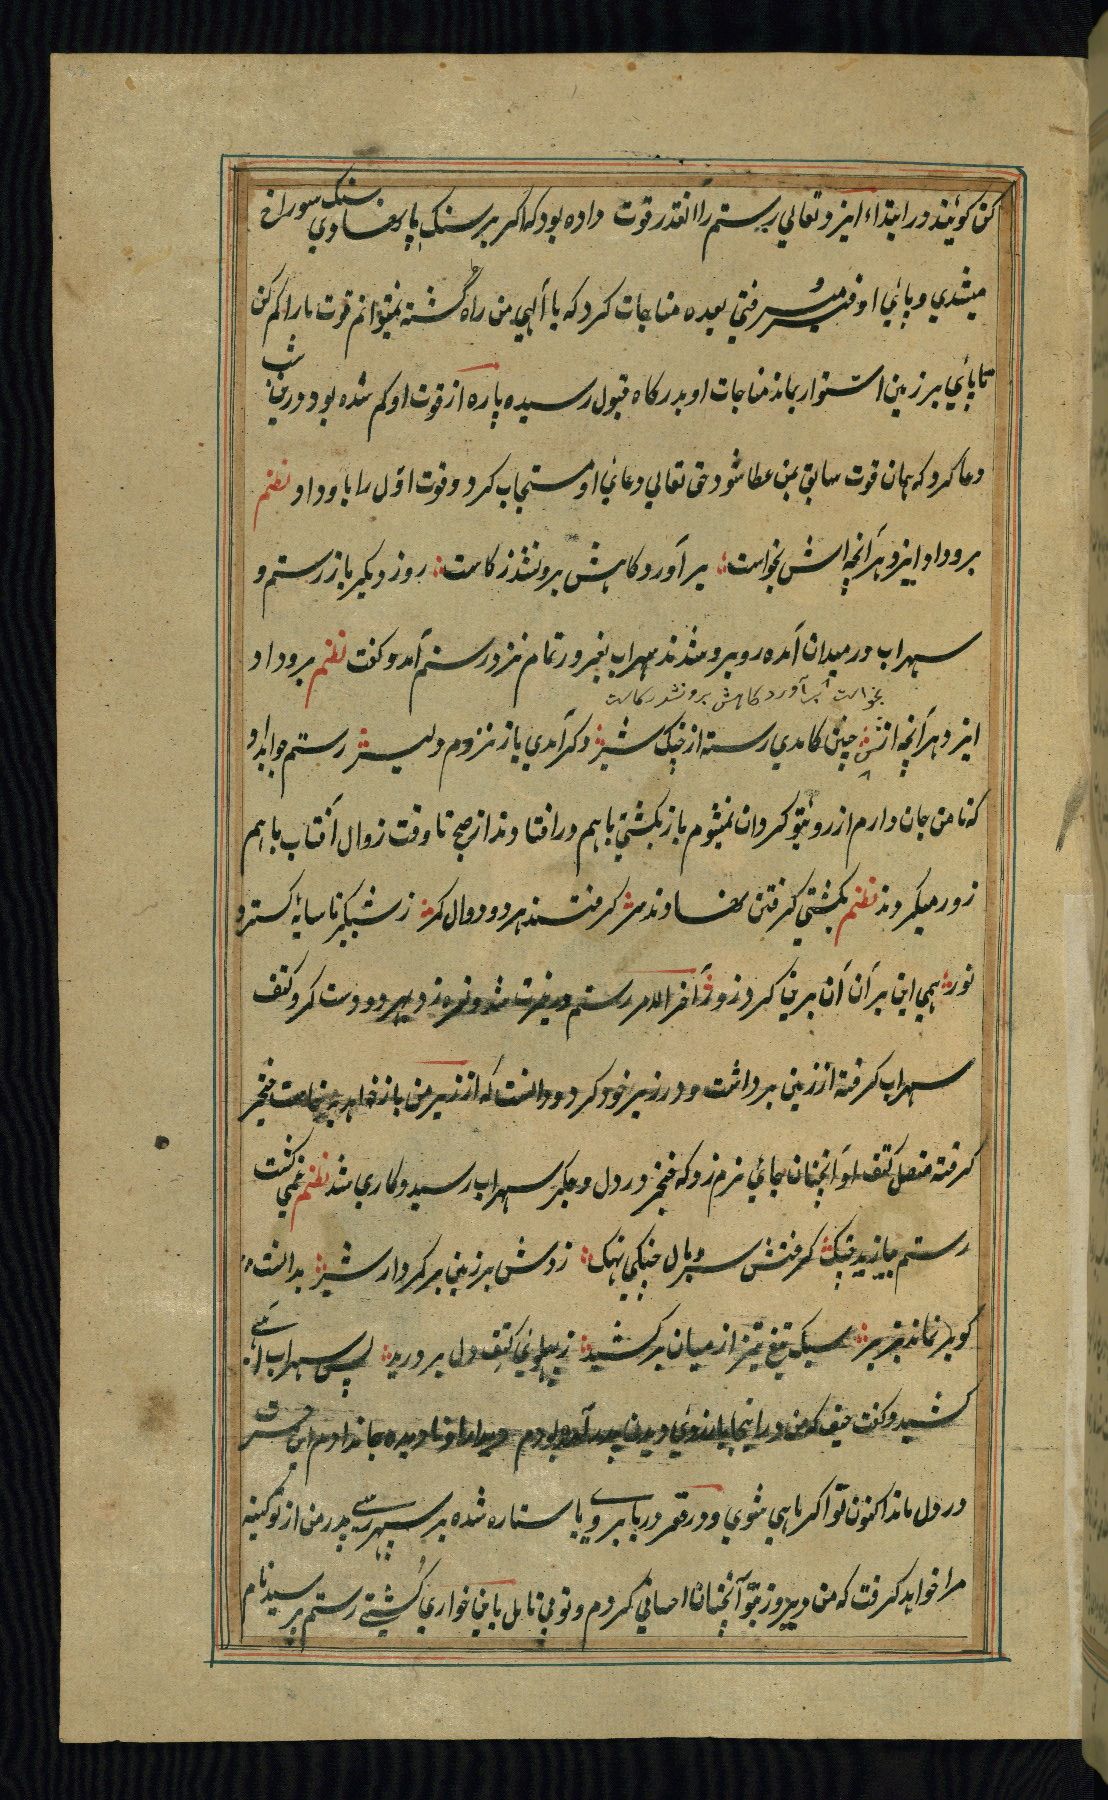 کن کویند در ابتداء ایزد تعالي رستم را آنقدر قوت داده بود که اکر بر سنک پاي نهادي سنک سوراخ
میشدي و پاي او فرو میرفتي بعده مناجات کرد که یا آلهي من راه کشته نمیتوانم قوت مارا کم کن
تا پاي بر زمین استوار بماند مناجات او بدرکاه قبول رسیده پاره از قوت او کم شده بود درین شب
دعا کرد که همان قوت سابق بمن عطا شود حق تعالي دعاي او مستجاب کرد و قوت اوّل را باو داد نظم
برو داد ایزد هرآنچه اش بخواست بر آورد کاهش برو نشد ز کاست روز دیکر باز رستم و
سهراب در میدان آمده روبرو شدند سهراب بغرور تمام نزد رستم آمد و کفت نظم برو داد
بخواست بر آورد کاهش برو نشد ز کاست
ایزد هرآنچه ازش چنین کامدي رسته از چنک شیر دکر آمدي باز نزدم دلیر رستم جوابداد
که تا من جان دارم از روئ تو کردان نمیشوم باز بکشتي با هم در افتادند از صبح تا وقت زوال آفتاب با هم
زور میکردند نظم بکشتي کرفتن نهادند سر کرفتند هر دو دوال کمر ز شبکیر تا سایه کسترد
نور همي این بر آن آن برین کرد زور آخر الامر رستم در غیرت شد و نعره زد بهر دو دست کمر و کتف
سهراب کرفته از زمین برداشت و در زیر خود کرد و دانست که از زیر من باز خواهد برخاست خنجر
کرفته متصل کتف او آنچنان بجاي نرم زد که خنجر در دل و جکر سهراب رسید و کاري شد نظم غمي کشت
رستم بیازید چنک کرفتش سر و یال جنکي نهنک زدش بر زمین بر کردار شیر بدانست
کو بر نماند بزیر سبک تیغ تیز از میان برکشید ز پهلوي کتف دل بر درید پس سهراب آهے
کشید و کفت حیف که من در اینجا بارزوي دیدن پدر آمده بودم دیدار او نادیده جاندادم این حسرت
در دل ماند اکنون تو اکر ماهي شوي و در قعر دریا بروے یا ستاره شده بر سپهر رسے پدر من از تو کینه
مرا خواهد کرفت که من دیروز بتو آنچنان احساني کردم و تو بي تامل باین خواري کشتے رستم پرسید نام